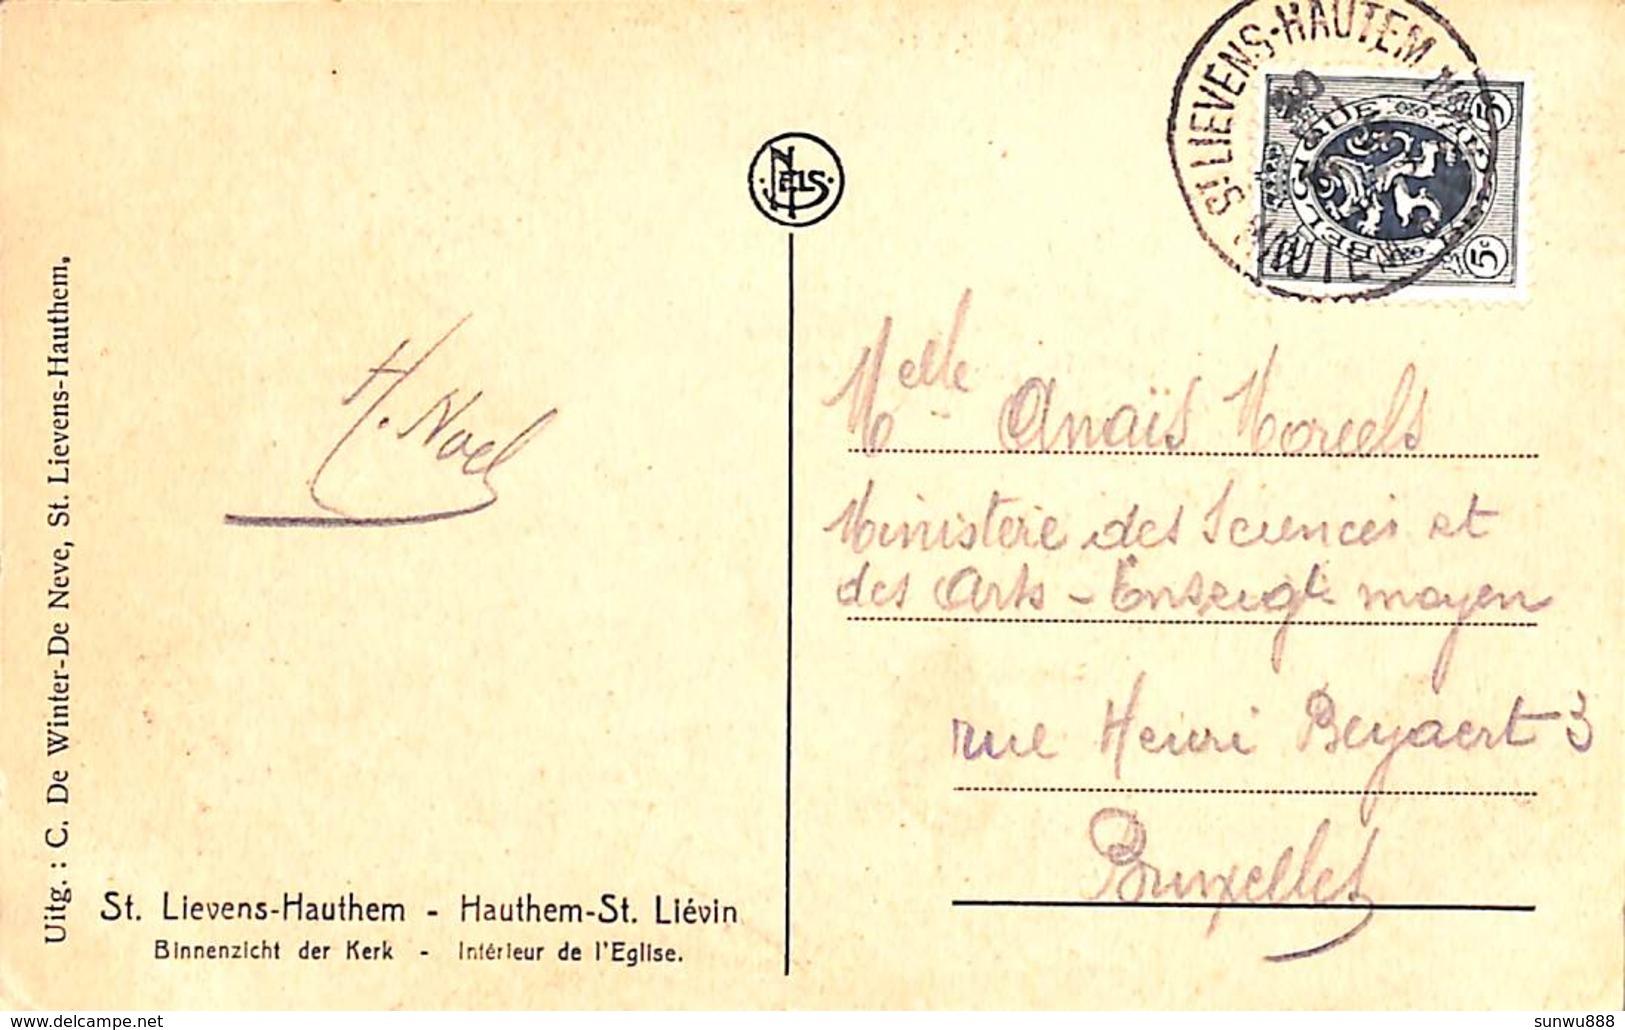 St. LIEVENS-HAUTEM
BELGIQUE
5
5c
NELS
Uitg. : C. De Winter-De Neve, St. Lievens-Hauthem,
H. Noel
Melle Anaïs Morcels
Ministère des Sciences et
des Arts - Enseigt moyen
rue Henri Beyaert 3
Bruxelles
St. Lievens-Hauthem - Hauthem-St. Liévin
Binnenzicht der Kerk - Intérieur de l'Eglise.
delcampe.net
sunwu888